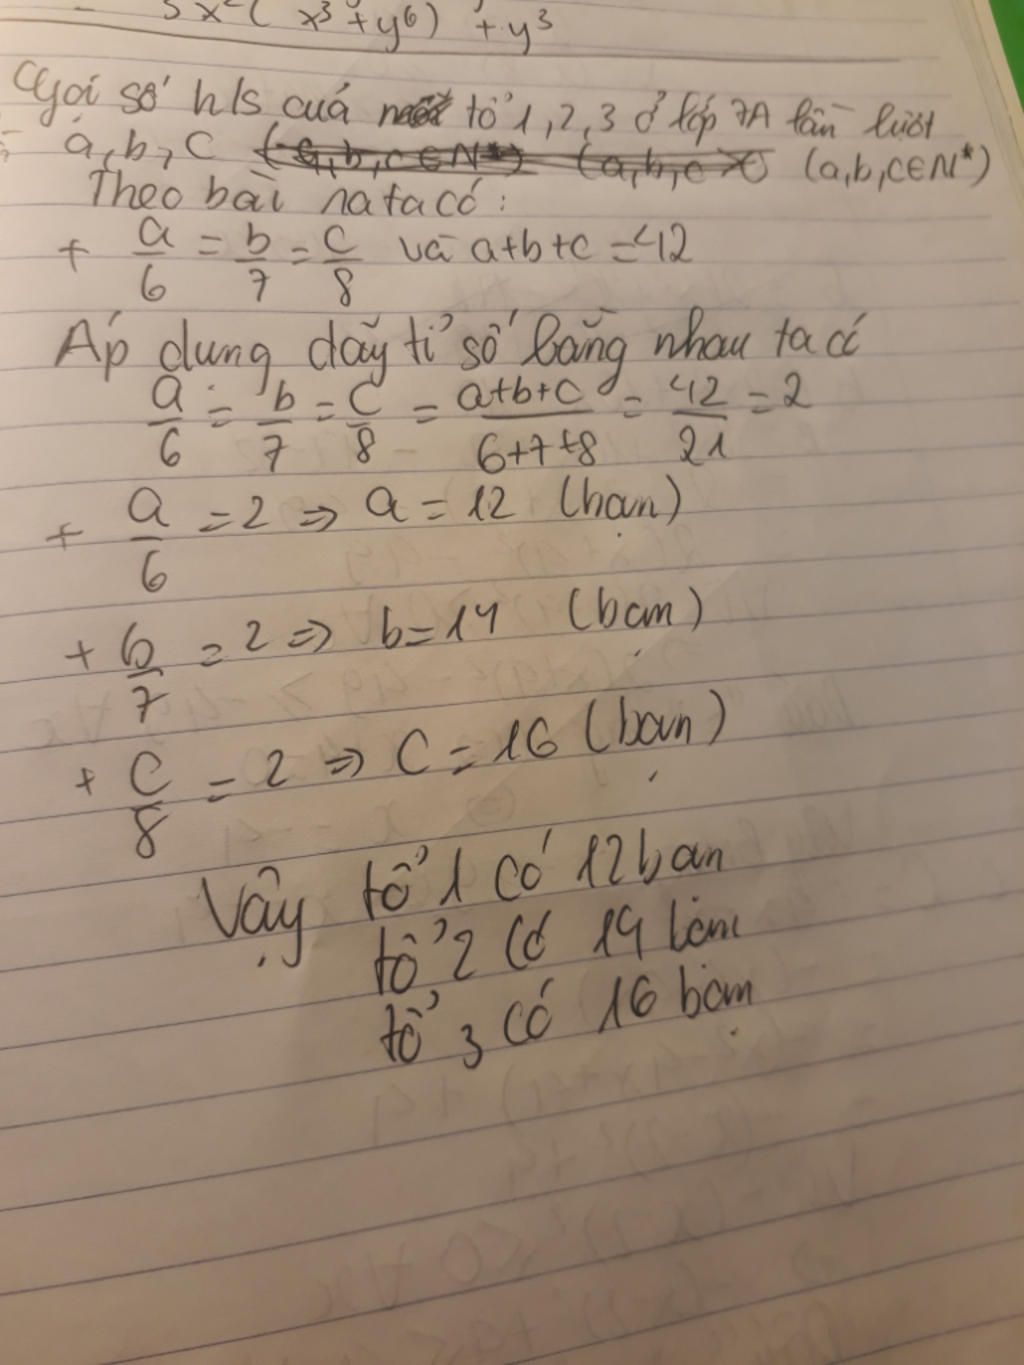 3x²( x³+y⁶) + y³
Gọi số h/s cuả tổ 1, 2, 3 ở lớp 7A lần lượt
a, b, c (a,b,c∈N*) (a,b,c (a,b,c∈N*)
Theo bài ra ta có :
+ a/6 = b/7 = c/8 và a+b+c = 42
Áp dụng dãy tỉ số bằng nhau ta có
a/6 = b/7 = c/8 = a+b+c/6+7+8 = 42/21 = 2
+ a/6 = 2 => a = 12 (bạn)
+ b/7 = 2 => b = 14 (bạn)
+ c/8 = 2 => c = 16 (bạn)
Vậy tổ 1 có 12 bạn
tổ 2 có 14 bạn
tổ 3 có 16 bạn